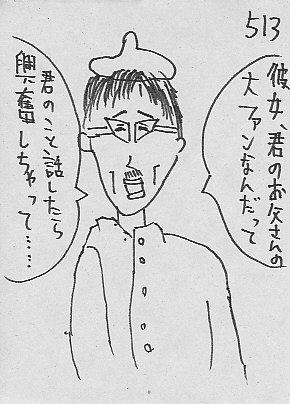 513
彼女、君のお父さんの
大ファンなんだって
君のこと話したら
興奮しちゃって……